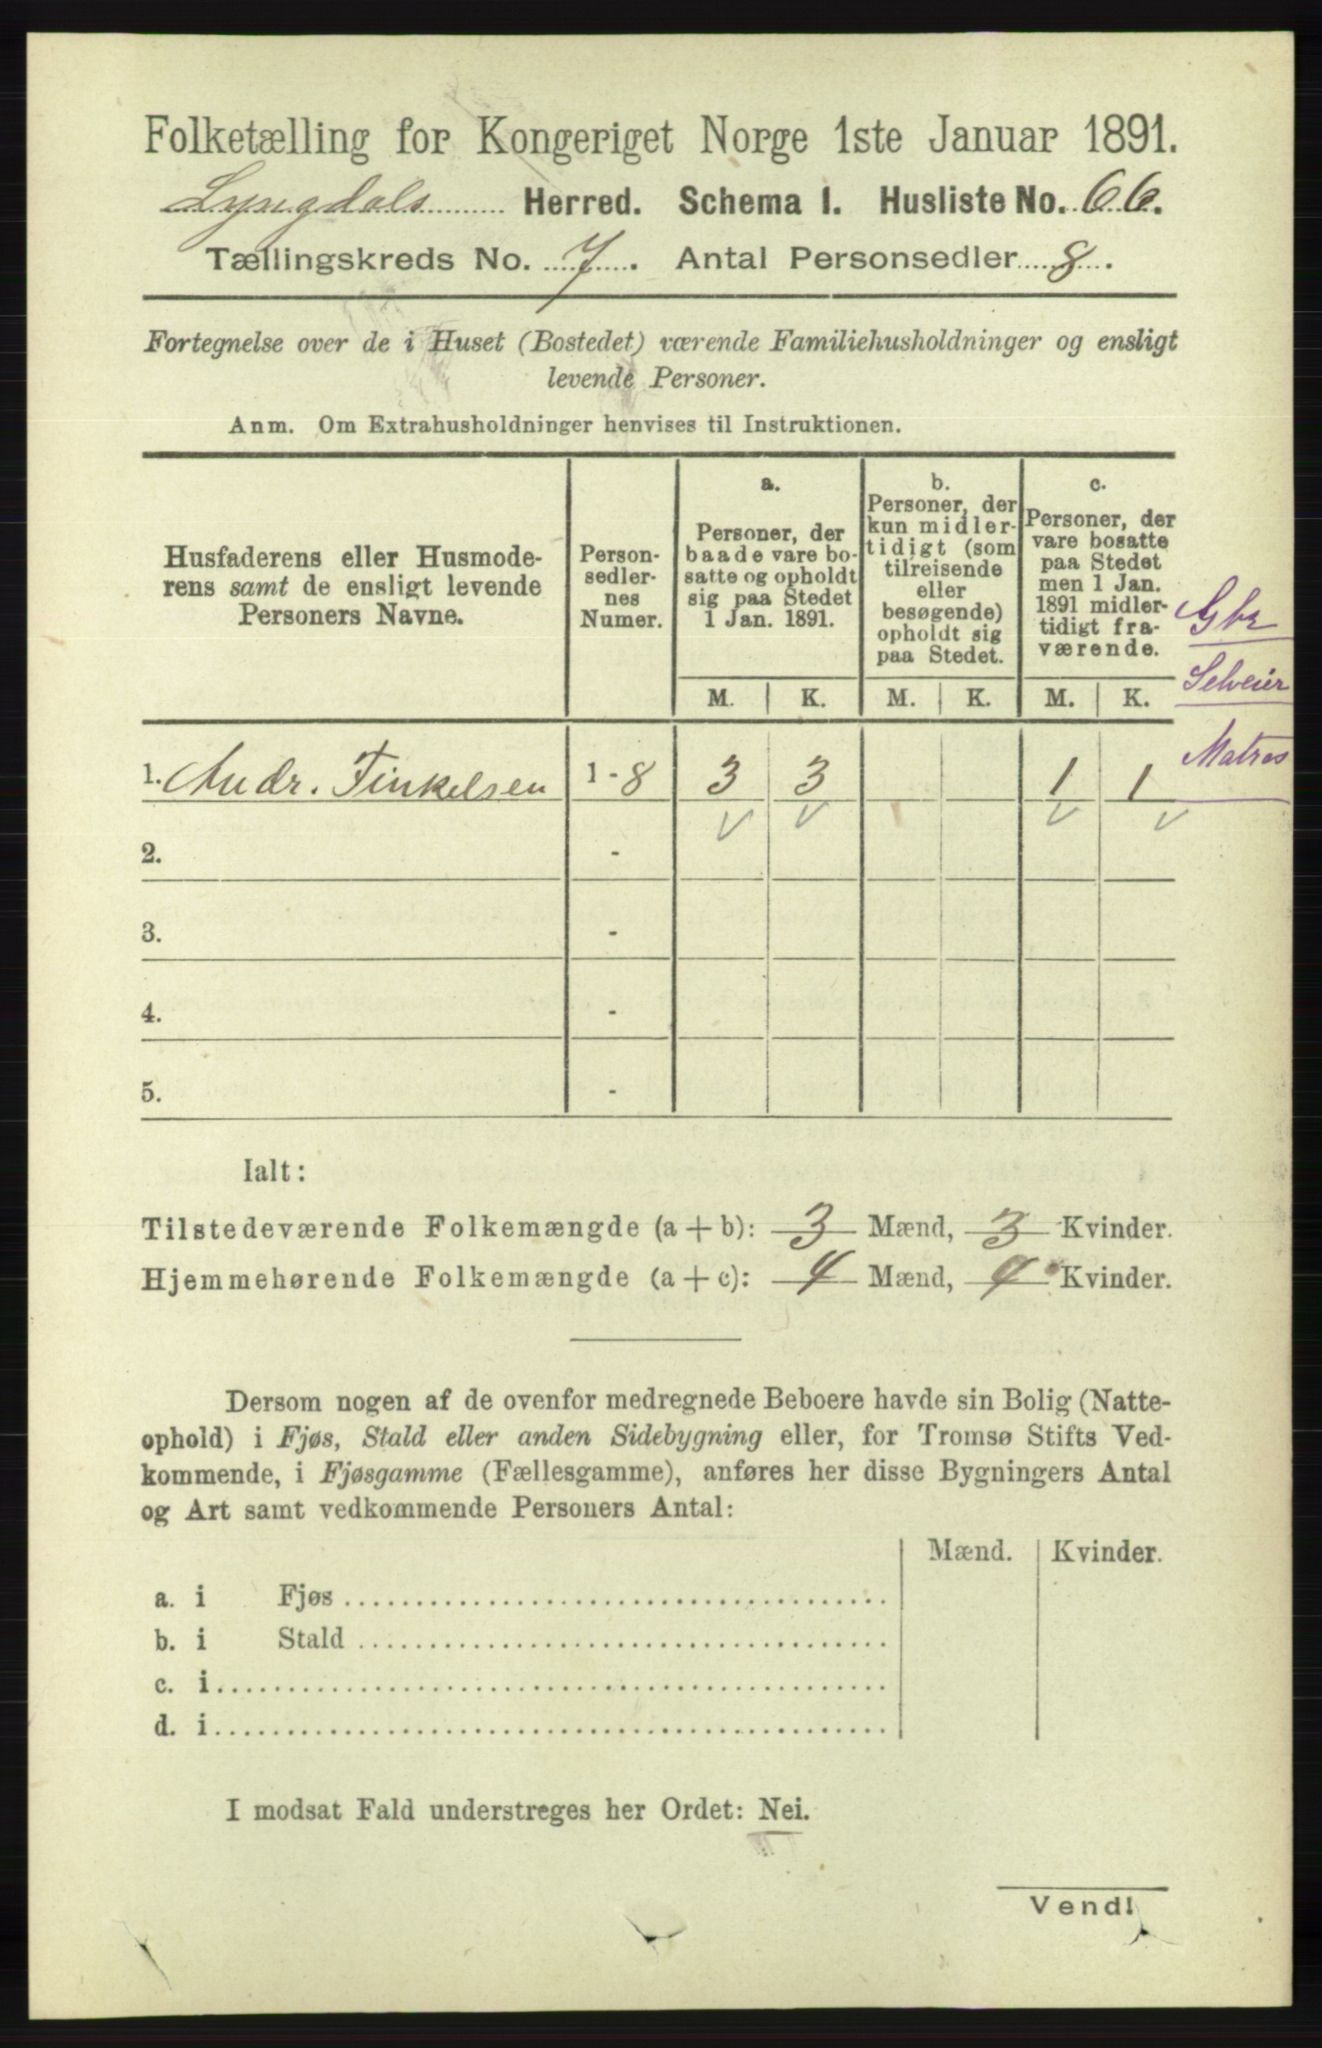 Folketælling for Kongeriget Norge 1ste Januar 1891.
Lyngdals Herred. Schema I. Husliste No. 66.
Tællingskreds No. 7. Antal Personsedler 8.
Fortegnelse over de i Huset (Bostedet) værende Familiehusholdninger og ensligt
levende Personer.
Anm. Om Extrahusholdninger henvises til Instruktionen.
Husfaderens eller Husmode-
rens samt de ensligt levende
Personers Navne.
Person-
sedler-
nes
Numer.
a.
Personer, der
baade vare bo-
satte og opholdt
sig paa Stedet
1 Jan. 1891.
b.
Personer, der
kun midler-
tidigt (som
tilreisende
eller
besøgende)
opholdt sig
paa Stedet.
c.
Personer, der
vare bosatte
paa Stedet
men 1 Jan.
1891 midler-
tidigt fra-
værende.
Gbr
Selveier
Matros
M. K. M. K. M. K.
1. Andr. Finkelsen 1-8 3 3 1 1
2. -
3. -
4. -
5. -
Ialt:
Tilstedeværende Folkemængde (a + b): 3 Mænd, 3 Kvinder.
Hjemmehørende Folkemængde (a + c): 4 Mænd, 4 Kvinder.
Dersom nogen af de ovenfor medregnede Beboere havde sin Bolig (Natte-
ophold) i Fjøs, Stald eller anden Sidebygning eller, for Tromsø Stifts Ved-
kommende, i Fjøsgamme (Fællesgamme), anføres her disse Bygningers Antal
og Art samt vedkommende Personers Antal:
Mænd. Kvinder.
a. i Fjøs
b. i Stald
c. i
d. i
I modsat Fald understreges her Ordet: Nei.
Vend!